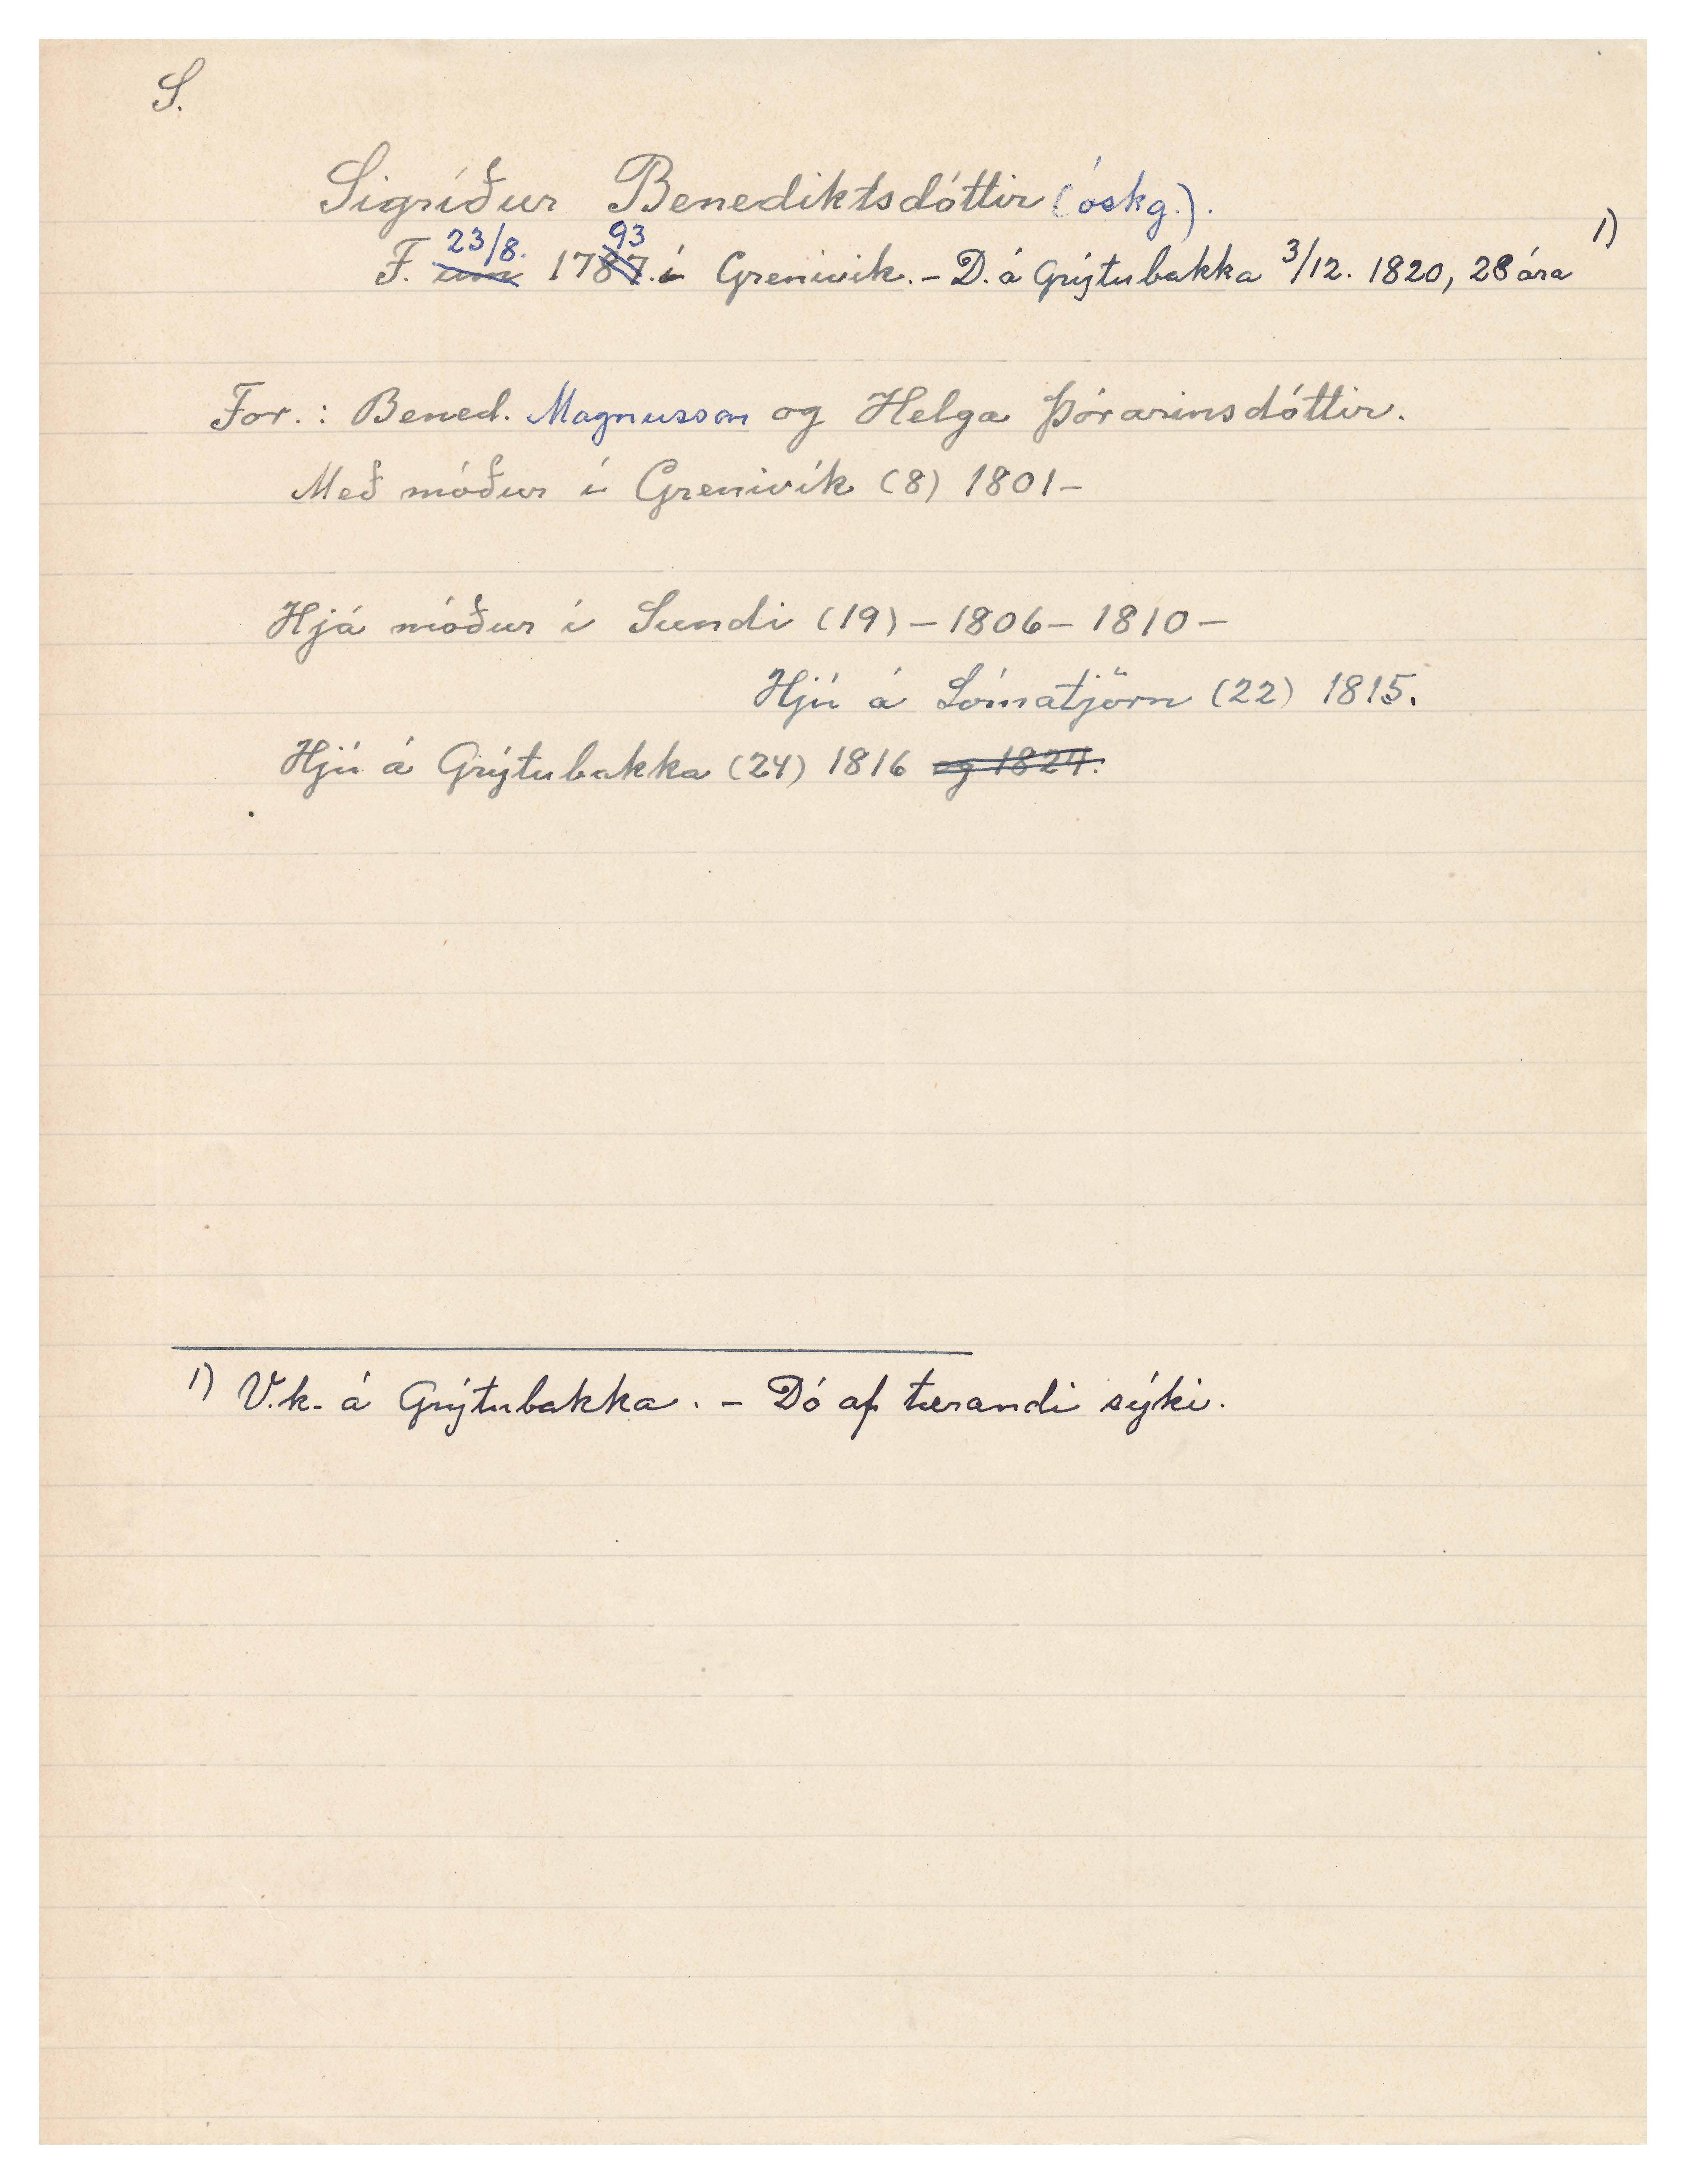 S.
Sigríður Benediktsdóttir (óskg.).
F. um 23/8. 1787. 93 í Grenivík. - D. á Grýtubakka 3/12. 1820, 28 ára 1)
For.: Bened. Magnusson og Helga Þórarinsdóttir.
Með móður í Grenivík (8) 1801-
Hjá móður í Sundi (19) - 1806 - 1810 -
Hjú á Lómatjörn (22) 1815.
Hjú á Grýtubakka (24) 1816 og 1824.
1) V.k. á Grýtubakka. - Dó af tærandi sýki.